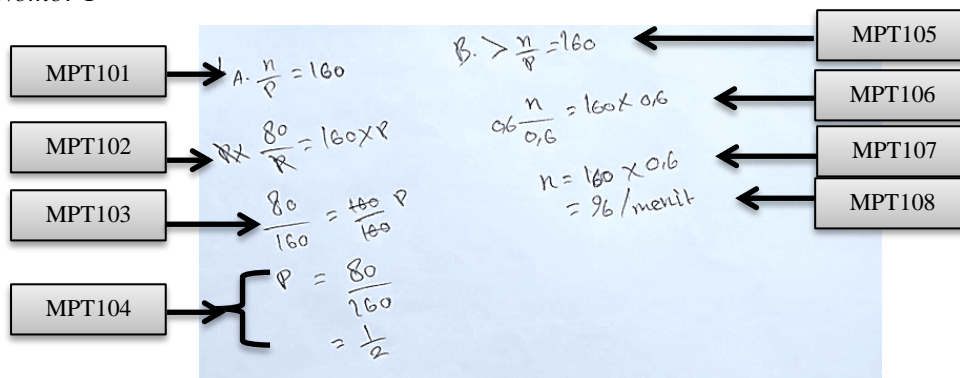 MPT101
MPT102
MPT103
MPT104
A. n/P = 160
P× 80/P = 160×P
80/160 = 160/160 P
P = 80/160
= 1/2
B. > n/P = 160
0,6 n/0,6 = 160× 0,6
n = 160 × 0,6
= 96/menit
MPT105
MPT106
MPT107
MPT108